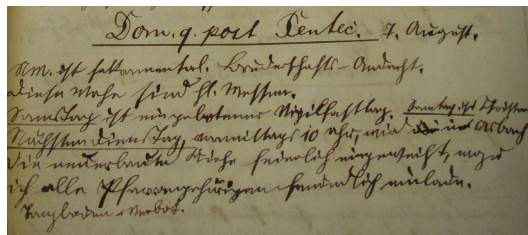 Dom. 9. post Pentec. 7. August.
Nm. ist sakramental. Bruderschafts-Andacht.
Diese Woche sind hl. Messen.
Samstag ist ein gebotener Vigilfasttag. Sonntag ist Christen
Nächsten Dienstag, vormittags 10 Uhr, wird in Arbach
die neuerbaute Kirche feierlich eingeweiht, wozu
ich alle Pfarrangehörigen freundlich einlade.
Tanzladen-Verbot.